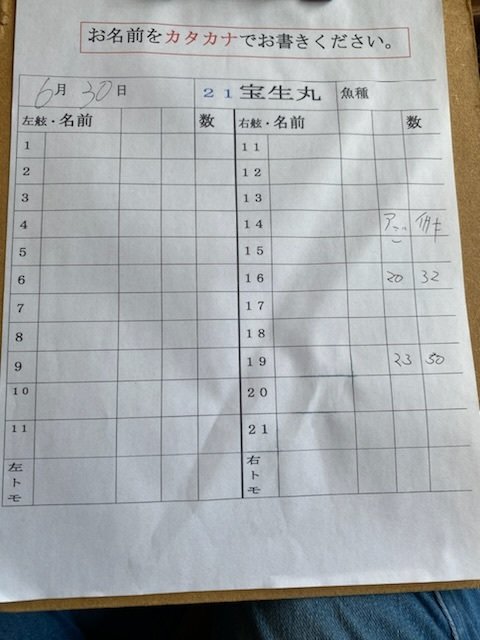 お名前をカタカナでお書きください。
6月 30日 21宝生丸 魚種
左舷・名前 数 右舷・名前 数
1 11
2 12
3 13
4 14
5 15
6 16 20 32
7 17
8 18
9 19 23 50
10 20
11 21
左トモ 右トモ